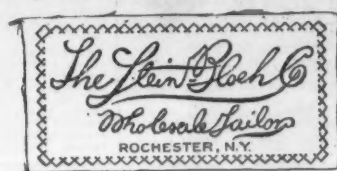 The Stein-Bloch Co
Wholesale Tailors
ROCHESTER, N.Y.